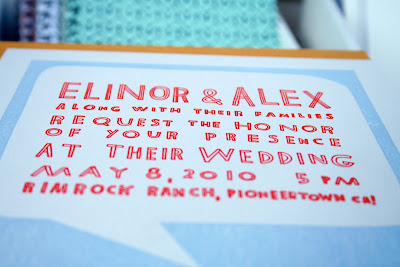 ELINOR & ALEX
ALONG WITH THEIR FAMILIES
REQUEST THE HONOR
OF YOUR PRESENCE
AT THEIR WEDDING
MAY 8, 2010 5 PM
RIMROCK RANCH, PIONEERTOWN CA!